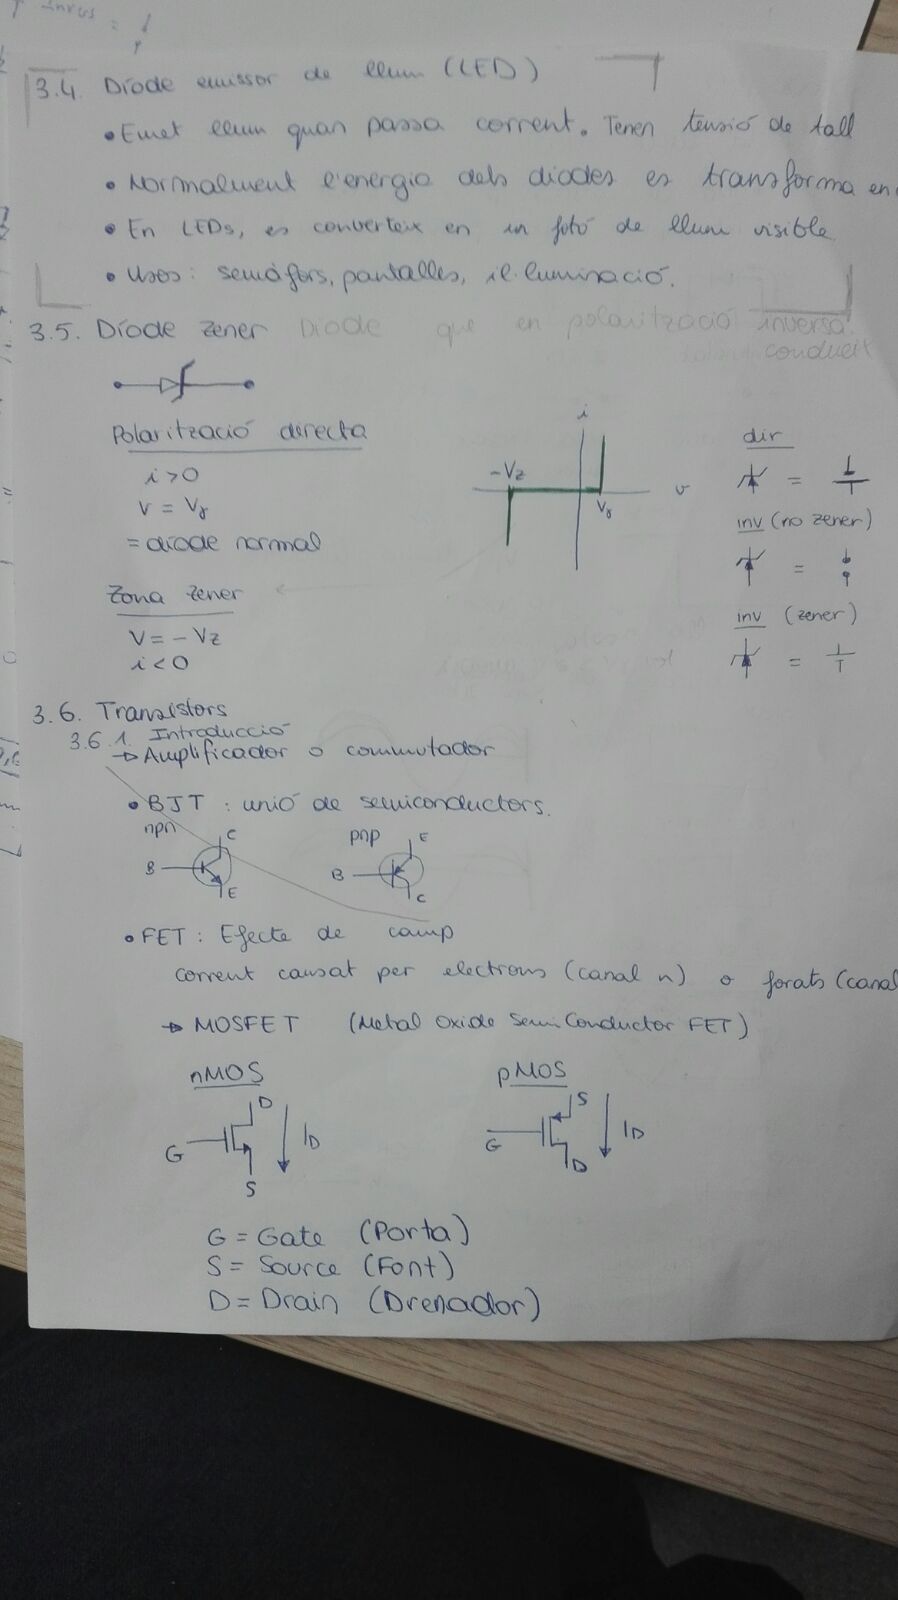 3.4. Díode emissor de llum (LED)
• Emet llum quan passa corrent. Tenen tensió de tall
• Normalment l'energia dels díodes es transforma en
• En LEDs, es converteix en un fotó de llum visible
• Usos: semàfors, pantalles, il·luminació.
3.5. Díode zener Díode que en polarització inversa
conducir
Polarització directa
i>0
v = Vγ
= díode normal
Zona zener
V = - Vz
i<0
i
-Vz
Vγ
v
dir
=
inv (no zener)
=
inv (zener)
=
3.6. Transistors
3.6.1. Introducció
→ Amplificador o commutador
• BJT: unió de semiconductors.
npn
B
C
E
pnp
B
E
C
• FET: Efecte de camp
corrent causat per electrons (canal n) o forats (canal
→ MOSFET (Metal Oxide SemiConductor FET)
nMOS
G
D
S
ID
pMOS
G
S
D
ID
G = Gate (Porta)
S = Source (Font)
D = Drain (Drenador)